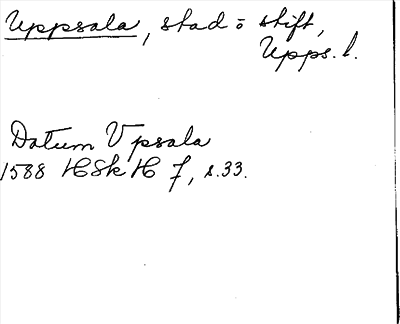 Uppsala, stad o stift,
Upps. l.
Datum Vpsala
1588 HSkH 7, s. 33.